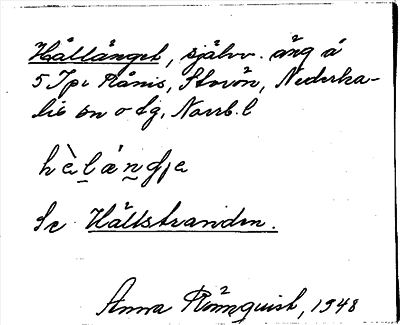 Hällänget, självv. äng å
5 Jpr Rånis, Storön, Nederka-
lix sn o dg, Norrb. l
hὲlándja
Se Hällstranden.
Anna Rönnquist, 1948